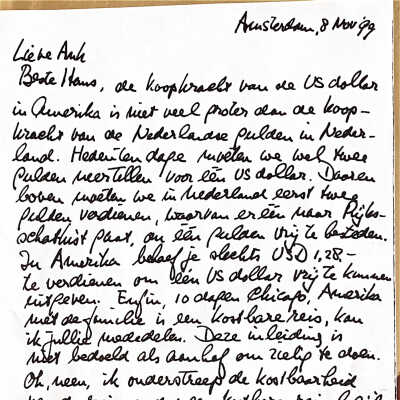 Amsterdam, 8 Nov 99
Lieve Ank
Beste Hans, de koopkracht van de US dollar
in Amerika is niet veel groter dan de koop-
kracht van de Nederlandse gulden in Neder-
land. Hedentendage moeten we wel twee
gulden neertellen voor één US dollar. Daaren
boven moeten we in Nederland eerst twee
gulden verdienen, waarvan er één naar Rijks-
schatkist gaat, om één gulden vrij te besteden.
In Amerika behoef je slechts USD 1,28-
te verdienen om één US dollar vrij te kunnen
uitgeven. Enfin, 10 dagen Chicago, Amerika
met de familie is een kostbare reis, kan
ik jullie mededelen. Deze inleiding is
niet bedoeld als aanhef om zielig te doen.
Oh, neen, ik onderstreep de kostbaarheid